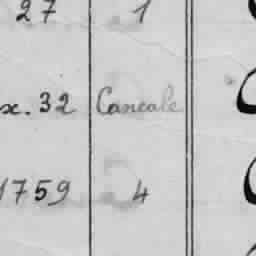 27 1
x. 32 Cancale
1759 4